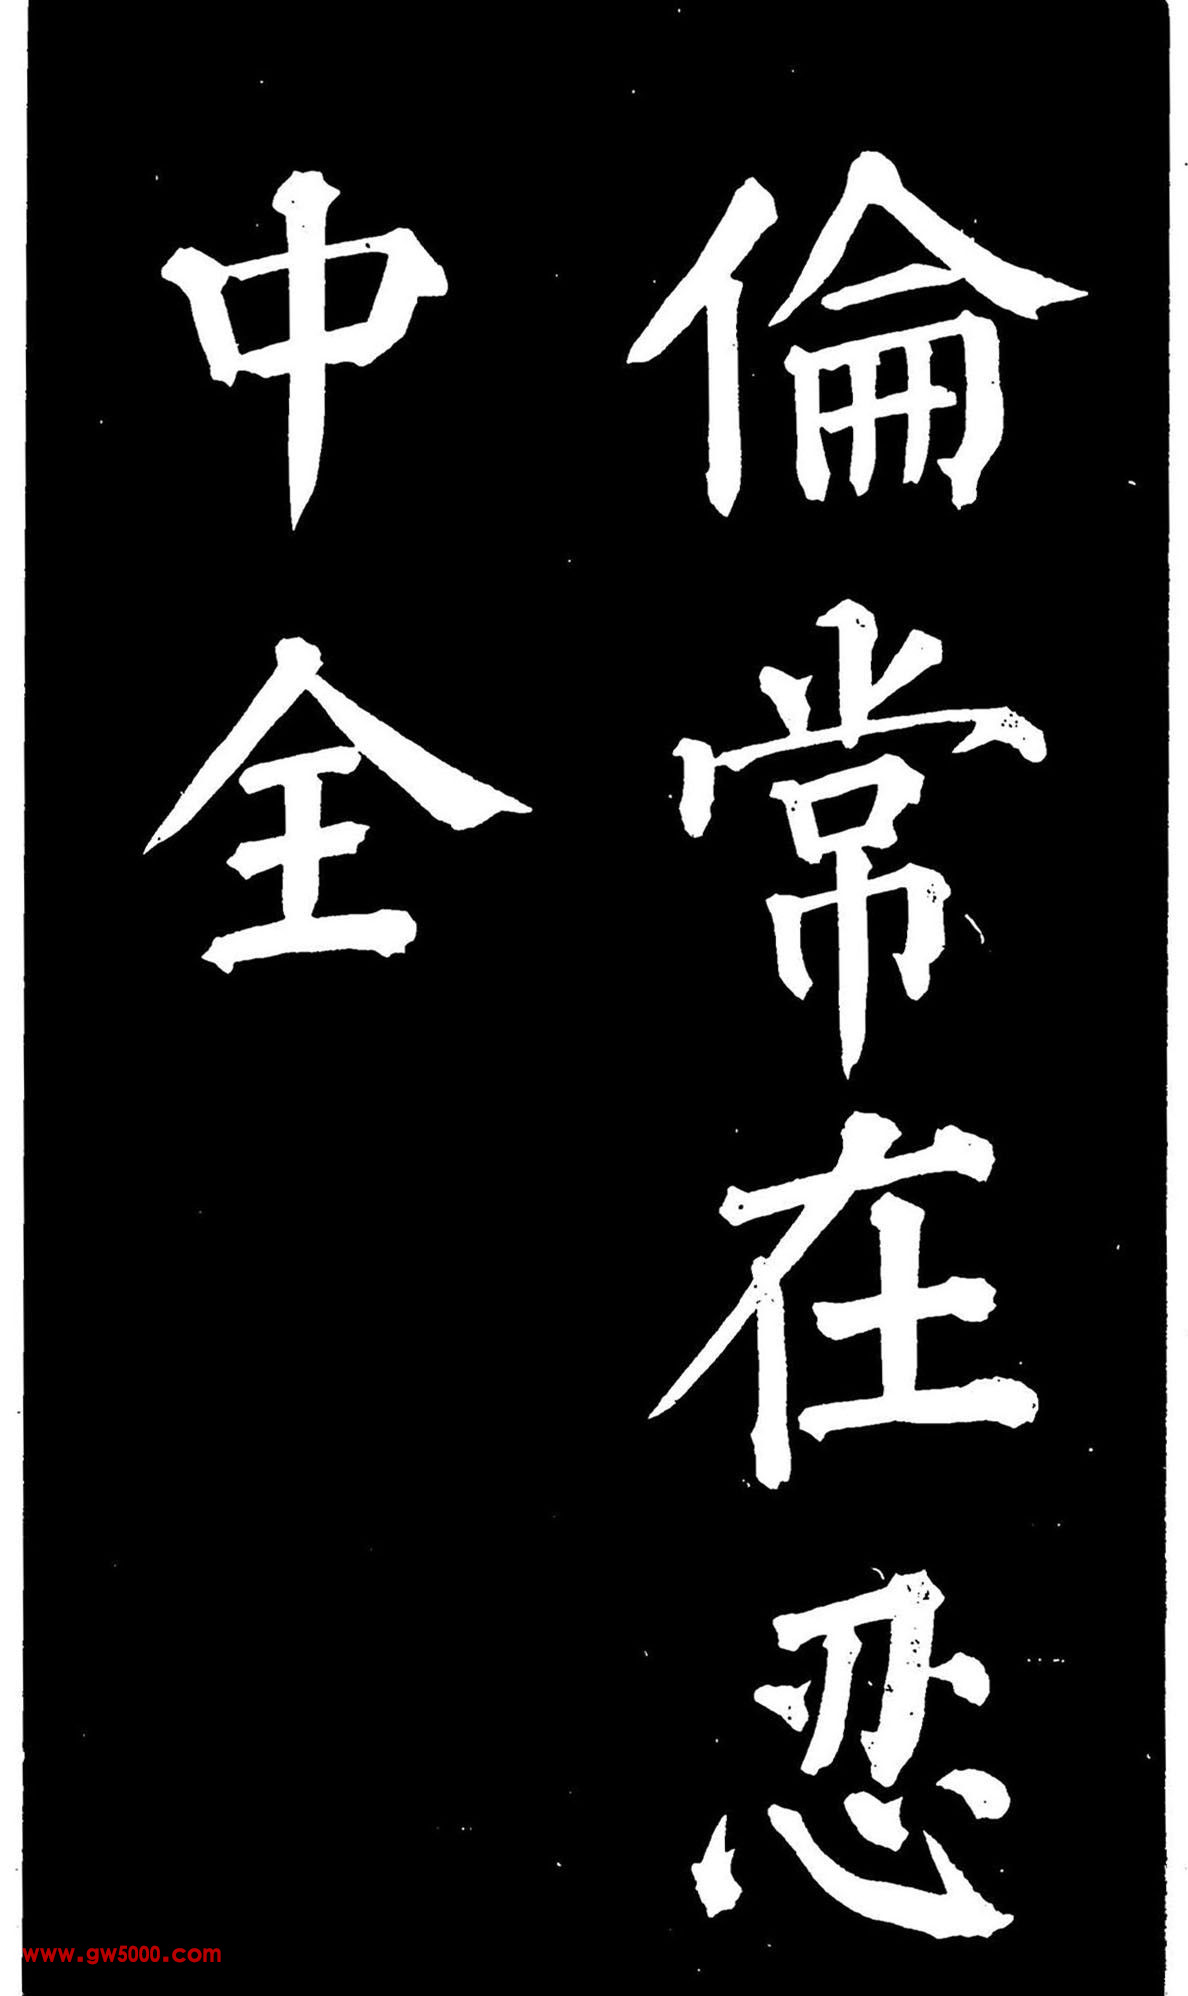 倫常在忍
中全
www.gw5000.com